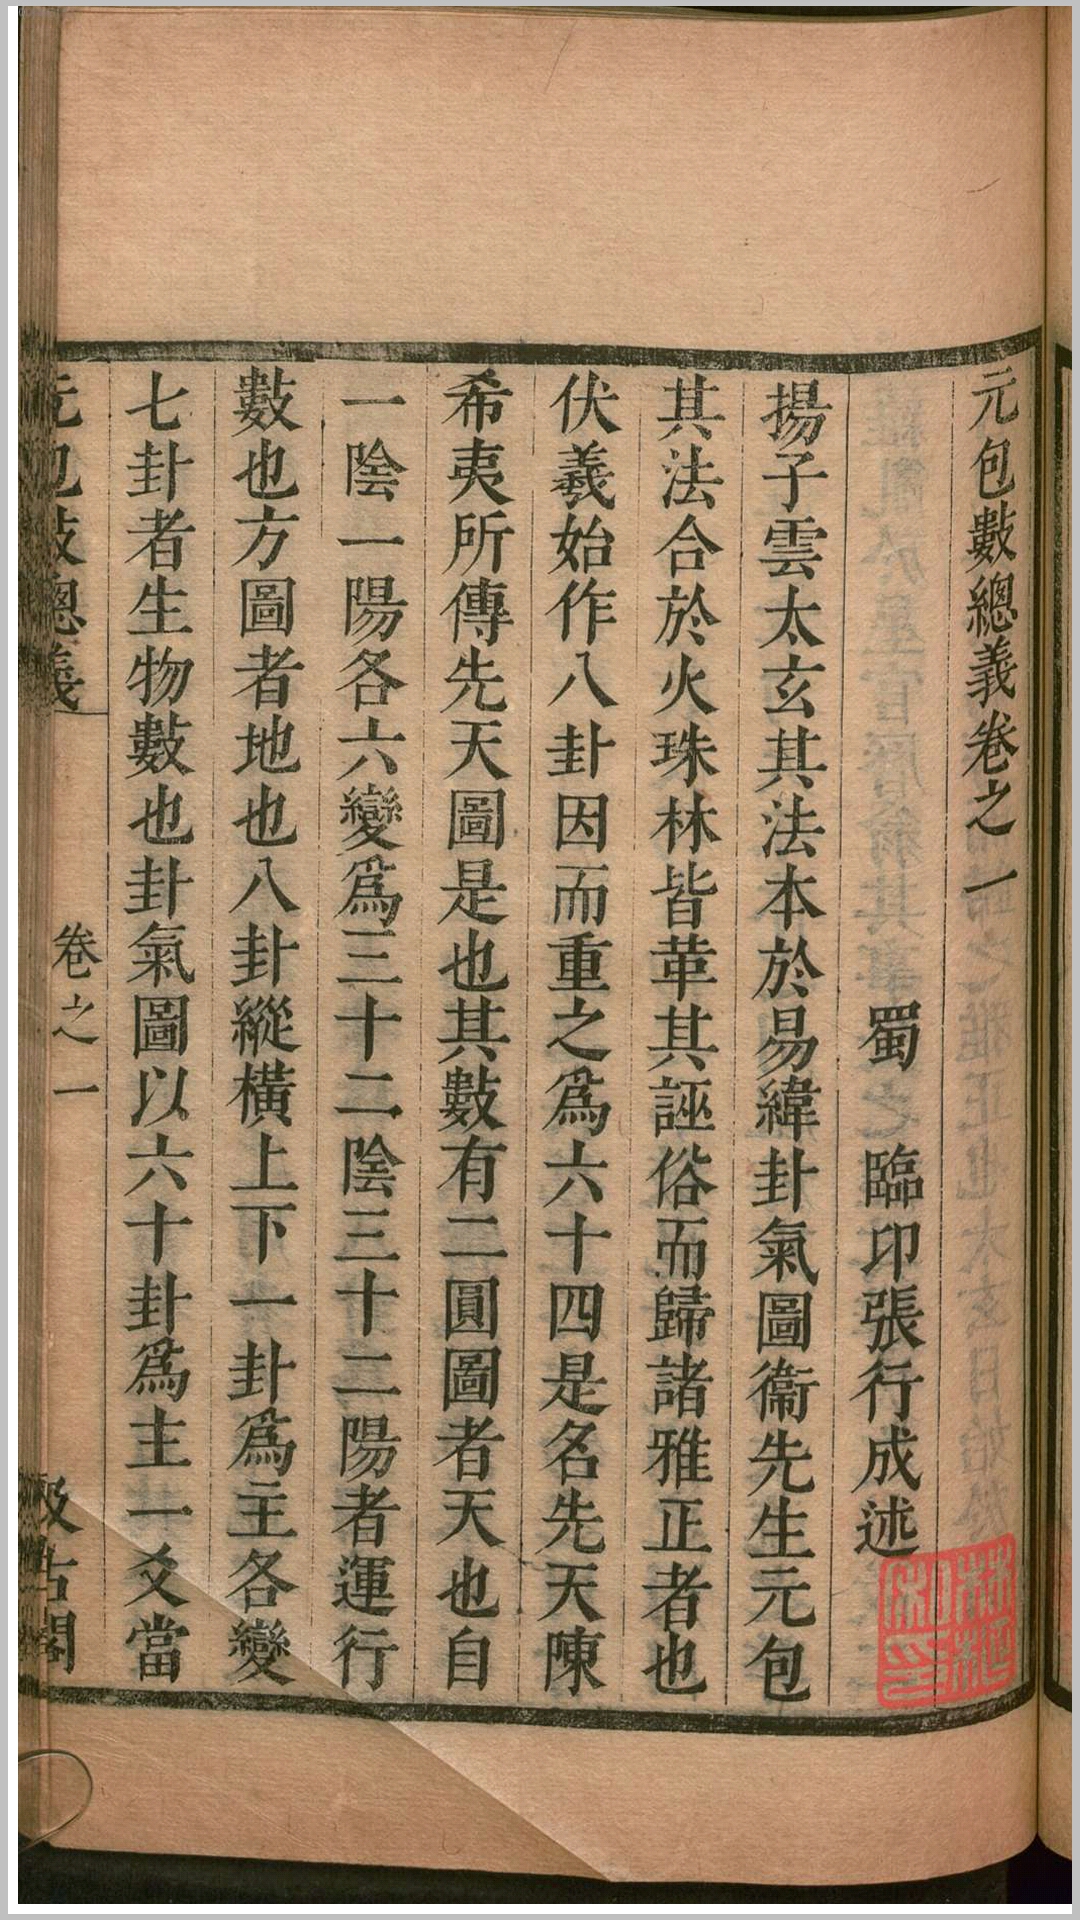 元包數總義卷之一
蜀 臨卭張行成述
揚子雲太玄其法本於易緯卦氣圖衞先生元包
其法合於火珠林皆革其誣俗而歸諸雅正者也
伏羲始作八卦因而重之爲六十四是名先天陳
希夷所傳先天圖是也其數有二圓圖者天也自
一陰一陽各六變爲三十二陰三十二陽者運行
數也方圖者地也八卦縱橫上下一卦爲主各變
七卦者生物數也卦氣圖以六十卦爲主一爻當
元包數總義 卷之一 汲古閣